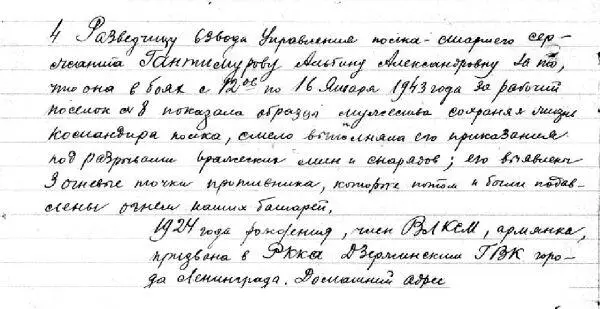 4 Разведчицу взвода Управления полка - старшего сер-
жанта Гантимурову Альбину Александровну за то,
что она в боях с 12ого по 16 Января 1943 года за рабочий
поселок № 8 показала образцы мужества сохраняя жизнь
командира полка, смело выполняла его приказания
под разрывами вражеских мин и снарядов; его выявлены
3 огневые точки противника, которые потом и были подав-
лены огнем наших батарей.
1924 года рождения, член ВЛКСМ, армянка,
призвана в РККА Дзержинским ГВК горо-
да Ленинграда. Домашний адрес